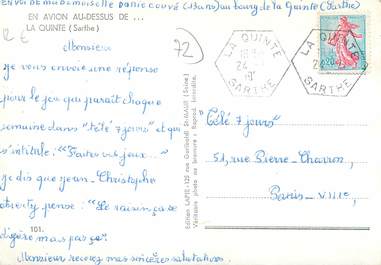 Envoi de mademoiselle Danie couvé (13 ans) au bourg de la Quinte (Sarthe)
EN AVION AU-DESSUS DE ...
LA QUINTE (Sarthe)
12 €
72
Monsieur
je vous envoie une réponse
pour le jeu qui paraît chaque
semaine dans "télé 7 jours" et qui
s'intitule: "Faites vos jeux..."
je dis que Jean-Christophe
pense: "Le raisin ça se
digère mais pas ça".
101.
Monsieur recevez mes sincères salutations.
Edition LAPIE - 125 rue Garibaldi St-MAUR (Seine)
Véritable photo au bromure - Reprod. interdite.
LA QUINTE
24
SARTHE
LA QUINTE
24
SARTHE
"Télé 7 jours"
51, rue Pierre-Charron,
Paris-VIIIe,